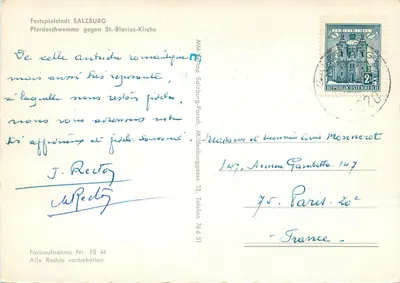 Festspielstadt SALZBURG
Pferdeschwemme gegen St.-Blasius-Kirche
De cette
mais aussi très reposante,
à laquelle nous restons fidèles,
nous vous adressons notre
et fidèle souvenir.
J. Rector
M Rector
Farbaufnahme Nr. FS 44
Alle Rechte vorbehalten
Verlag Salzburg-Parsch, Telefon 76 6 51
REPUBLIK ÖSTERREICH
Madame et Monsieur Louis Monneret
147, Avenue Gambetta. 147
75. Paris. 20e
France